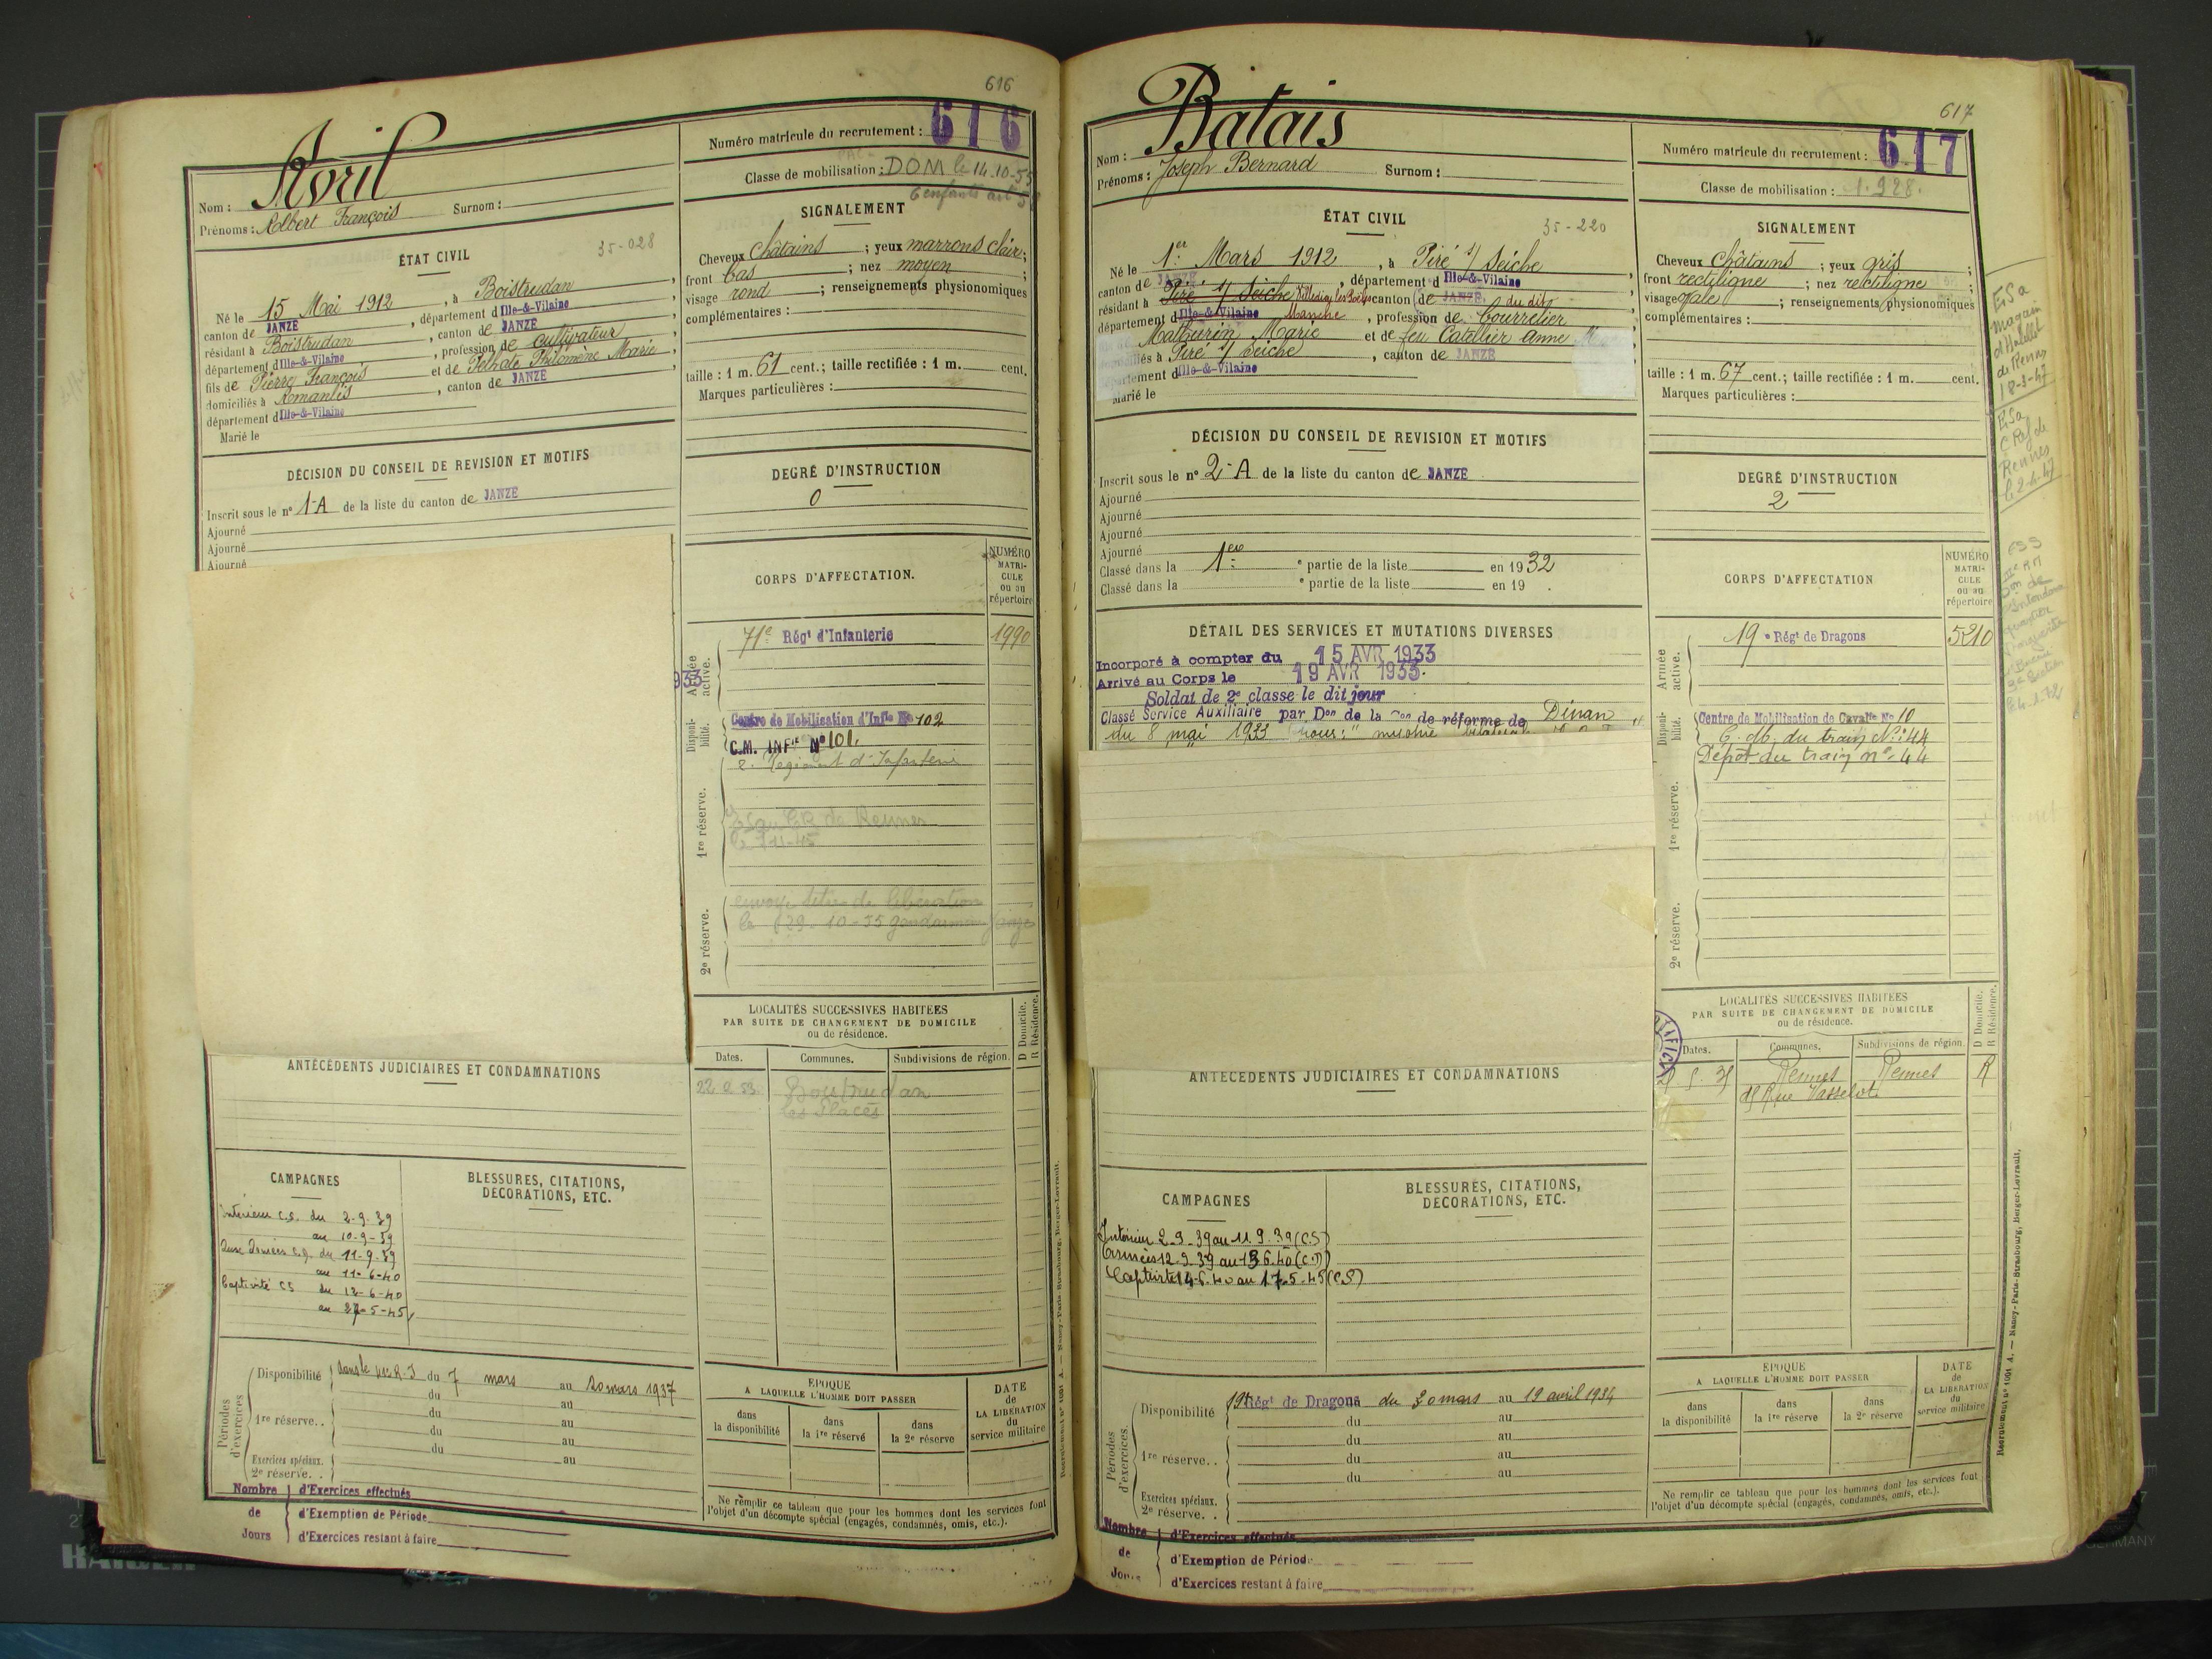 616
Avril
Nom :
Prénoms : Albert François Surnom :
ÉTAT CIVIL
35-028
Né le 15 Mai 1912, à Boistrudan,
canton de JANZÉ, département d Ille-&-Vilaine,
résidant à Boistrudan, canton de JANZÉ,
département d Ille-&-Vilaine, profession de cultivateur,
fils de Pierre François et de Philomène Marie,
domiciliés à Amanlis, canton de JANZÉ
département d Ille-&-Vilaine
Marié le
DÉCISION DU CONSEIL DE REVISION ET MOTIFS
Inscrit sous le n° 1-A de la liste du canton de JANZE
Ajourné
Ajourné
Ajourné
ANTÉCÉDENTS JUDICIAIRES ET CONDAMNATIONS
CAMPAGNES
Intérieur C.S. du 2-9-39
au 10-9-39
aux Armées C.D. du 11-9-39
au 11-6-40
Captivité CS du 12-6-40
au -5-45
BLESSURES, CITATIONS,
DÉCORATIONS, ETC.
Périodes d'exercices
Disponibilité dans le R.I du 7 mars au 20 mars 1937
du au
1re réserve . . du au
du au
du au
Exercices spéciaux.
2e réserve. .
Nombre de Jours
d'Exercices effectués
d'Exemption de Période
d'Exercices restant à faire
Numéro matricule du recrutement : 616
Classe de mobilisation : DOM le 14-10-55
6 enfants art 5
SIGNALEMENT
Cheveux châtains ; yeux marrons clair ;
front bas ; nez moyen ;
visage rond ; renseignements physionomiques
complémentaires :
taille : 1 m. 61 cent. ; taille rectifiée : 1 m. cent.
Marques particulières :
DEGRÉ D'INSTRUCTION
0
CORPS D'AFFECTATION.
NUMÉRO
MATRI-
CULE
ou au
répertoire
Armée active.
933
71e Régt d'Infanterie 1990
Disponibilité.
Centre de Mobilisation d'Infie No 102
C.M. INFie N° 101.
Régiment d'Infanterie
1re réserve.
de Rennes
2e réserve.
envoyé titre de libération
le 29-10-55 gendarmerie Janzé
LOCALITÉS SUCCESSIVES HABITÉES
PAR SUITE DE CHANGEMENT DE DOMICILE
ou de résidence.
D Domicile.
R Résidence.
Dates. Communes. Subdivisions de région.
Boistrudan
les Places
ÉPOQUE
A LAQUELLE L'HOMME DOIT PASSER
dans la disponibilité
dans la 1re réserve
dans la 2e réserve
DATE
de
LA LIBÉRATION
du
service militaire
Ne remplir ce tableau que pour les hommes dont les services font
l'objet d'un décompte spécial (engagés, condamnés, omis, etc.).
617
Batais
Nom :
Prénoms : Joseph Bernard Surnom :
ÉTAT CIVIL
35-220
Né le 1er Mars 1912, à Piré s/ Seiche,
canton de JANZÉ, département d Ille-&-Vilaine,
résidant à Piré s/ Seiche Villedieu les Poëles canton de JANZÉ, du dit
département d Ille-&-Vilaine Manche, profession de bourrelier
Mathurin Marie et de feu Catellier Anne M
à Piré s/ Seiche, canton de JANZÉ
département d Ille-&-Vilaine
Marié le
DÉCISION DU CONSEIL DE REVISION ET MOTIFS
Inscrit sous le n° 2-A de la liste du canton de JANZE
Ajourné
Ajourné
Ajourné
Ajourné
Classé dans la 1ère e partie de la liste en 1932
Classé dans la e partie de la liste en 19 .
DÉTAIL DES SERVICES ET MUTATIONS DIVERSES
Incorporé à compter du 15 AVR 1933
Arrivé au Corps le 19 AVR 1933.
Soldat de 2e classe le dit jour
Classé Service Auxiliaire par Don de la Con de réforme de Dinan
du 8 mai 1933 pour : "myopie bilatérale
ANTÉCÉDENTS JUDICIAIRES ET CONDAMNATIONS
CAMPAGNES
Intérieur 2-9-39 au 11.9.39 (C.S)
Armées 12.9.39 au 13 6.40 (C.D)
Captivité 14-6.40 au 17.5.45 (C.S)
BLESSURES, CITATIONS,
DÉCORATIONS, ETC.
Périodes d'exercices
Disponibilité 19e Régt de Dragons du 30 mars au 19 avril 1934
du au
du au
1re réserve . . du au
du au
Exercices spéciaux.
2e réserve. .
Nombre de Jours
d'Exercices effectués
d'Exemption de Période
d'Exercices restant à faire
Numéro matricule du recrutement : 617
Classe de mobilisation : 1.928.
SIGNALEMENT
Cheveux châtains ; yeux gris ;
front rectiligne ; nez rectiligne ;
visage ovale ; renseignements physionomiques
complémentaires :
taille : 1 m. 67 cent. ; taille rectifiée : 1 m. cent.
Marques particulières :
DEGRÉ D'INSTRUCTION
2
CORPS D'AFFECTATION
NUMÉRO
MATRI-
CULE
ou au
répertoire
Armée active.
19 e Régt de Dragons 5210
Disponibilité.
Centre de Mobilisation de Cavalie No 10
C. M. du train N° 44
Dépôt du train n° 44
1re réserve.
2e réserve.
LOCALITÉS SUCCESSIVES HABITÉES
PAR SUITE DE CHANGEMENT DE DOMICILE
ou de résidence.
D Domicile.
R Résidence.
Dates. Communes. Subdivisions de région.
Rennes Rennes R
Rue Vasselot
ÉPOQUE
A LAQUELLE L'HOMME DOIT PASSER
dans la disponibilité
dans la 1re réserve
dans la 2e réserve
DATE
de
LA LIBÉRATION
du
service militaire
Ne remplir ce tableau que pour les hommes dont les services font
l'objet d'un décompte spécial (engagés, condamnés, omis, etc.).
ESa
magasin
d'Habillt
de Rennes
18-3-47
ESa
Rennes
le 2-4-47
Recrutement n° 1091 A. — Nancy-Paris-Strasbourg, Berger-Levrault.
GERMANY